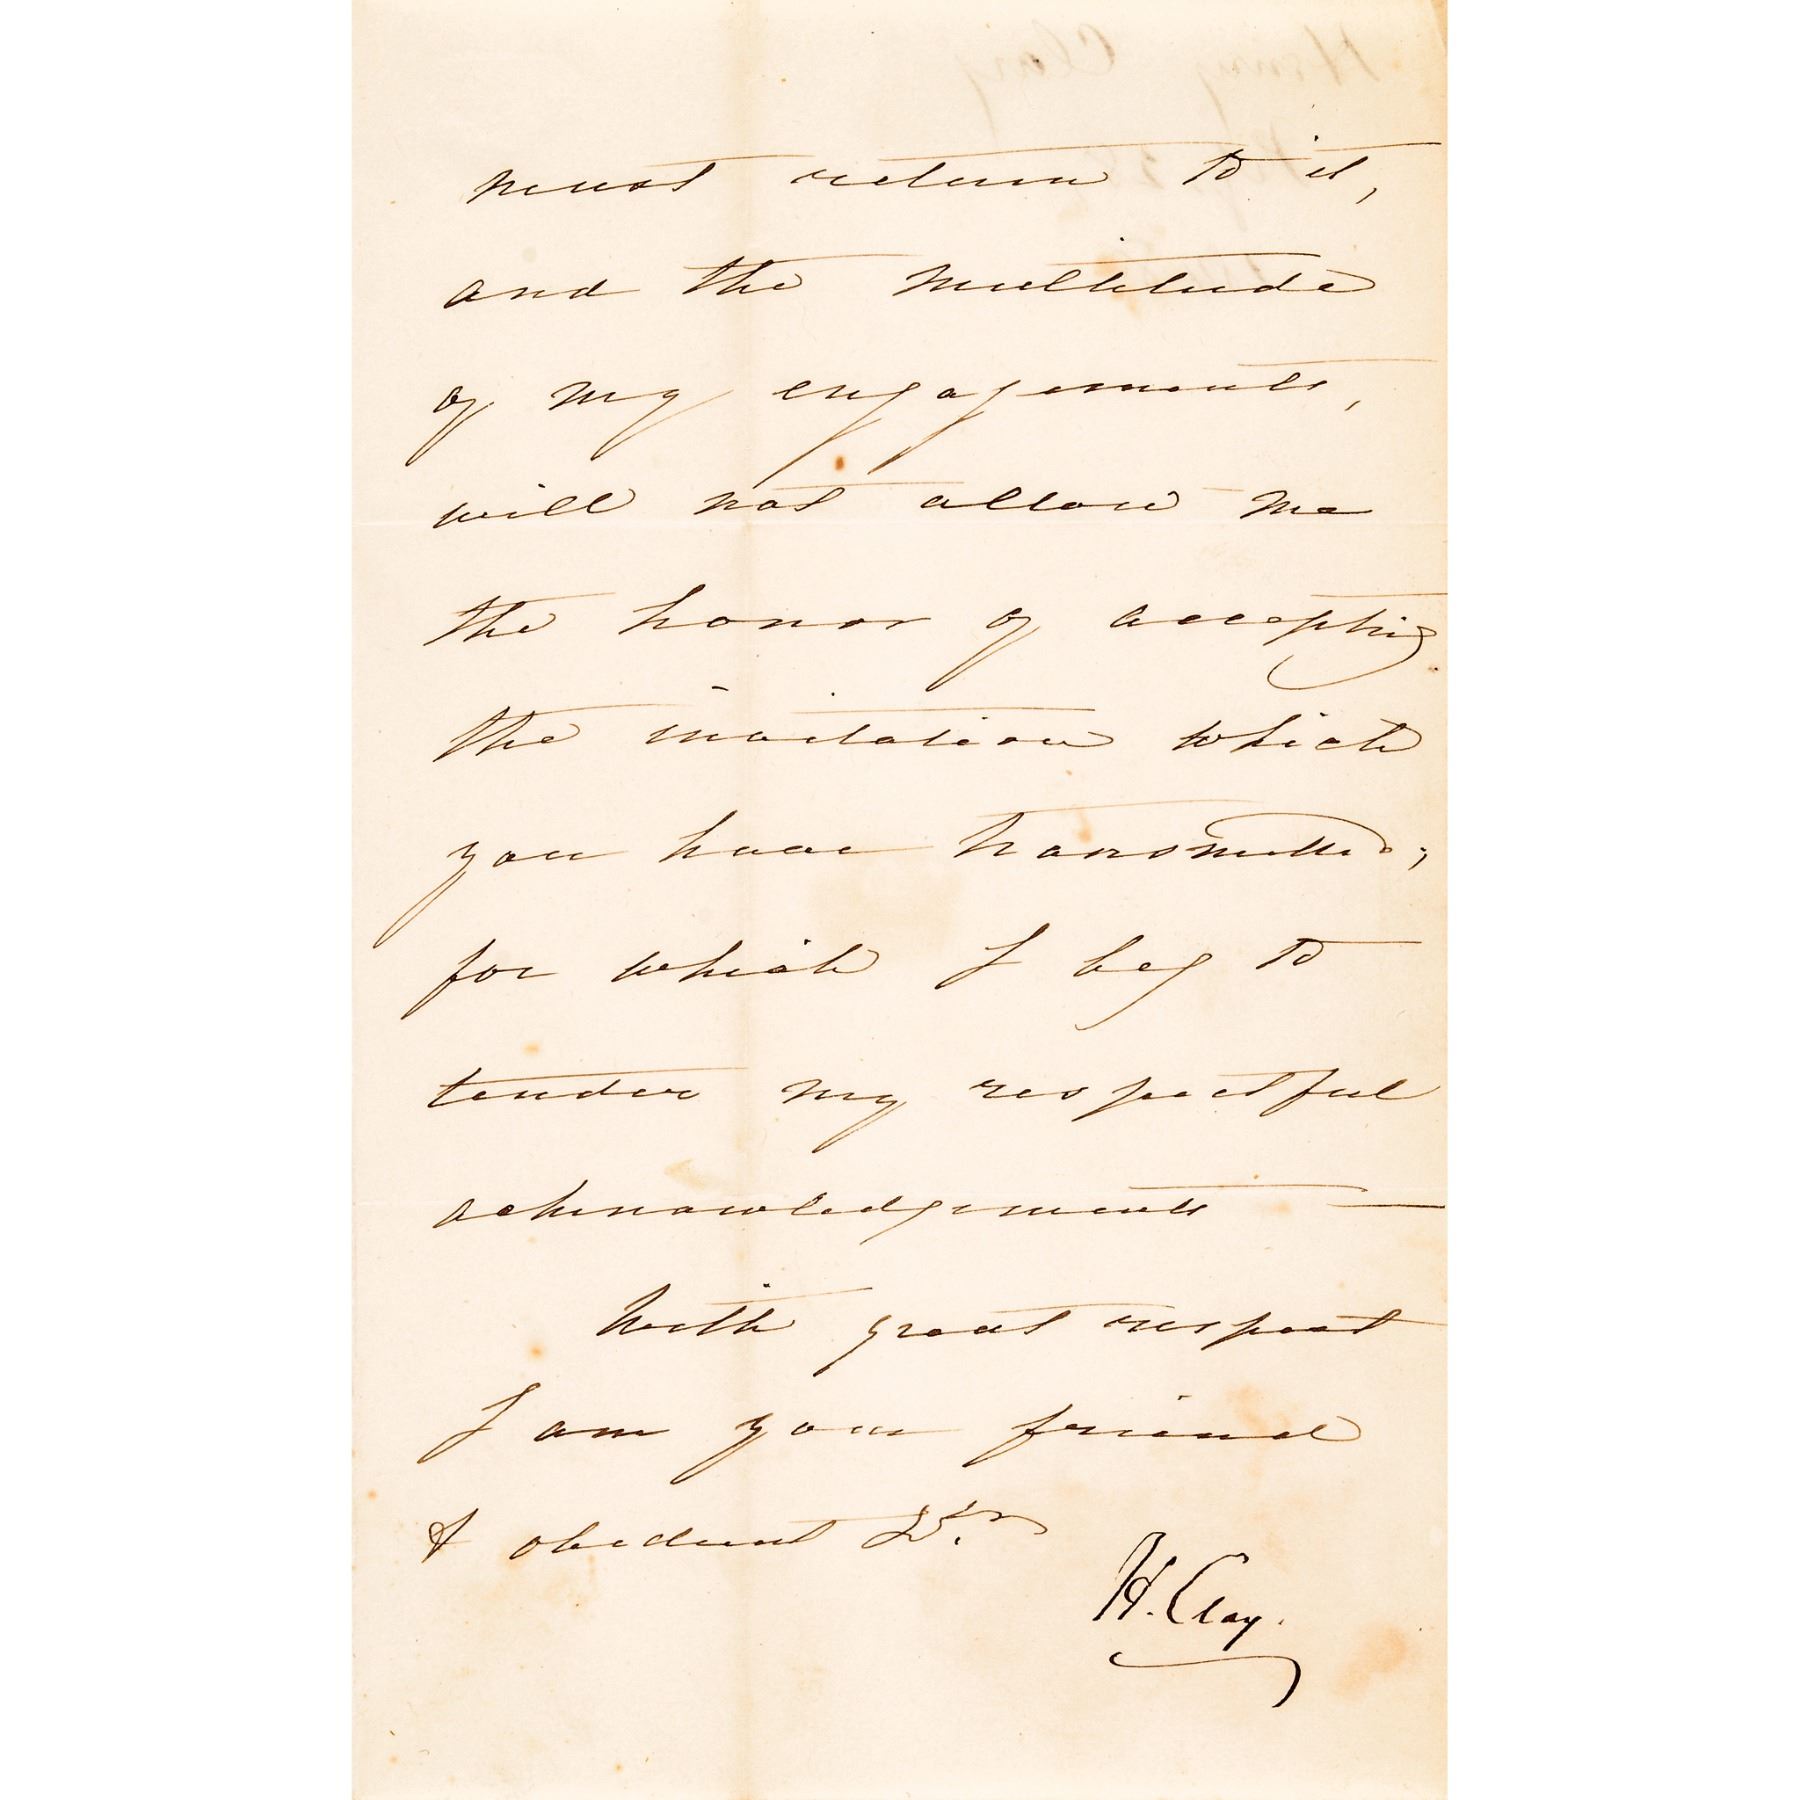 Henry Clay
must return to it,
and the multitude
of my engagements,
will not allow me
the honor of accepting
the invitation which
you have transmitted;
for which I beg to
tender my respectful
acknowledgements —
With great respect
I am your friend
& obedient St.
H. Clay.